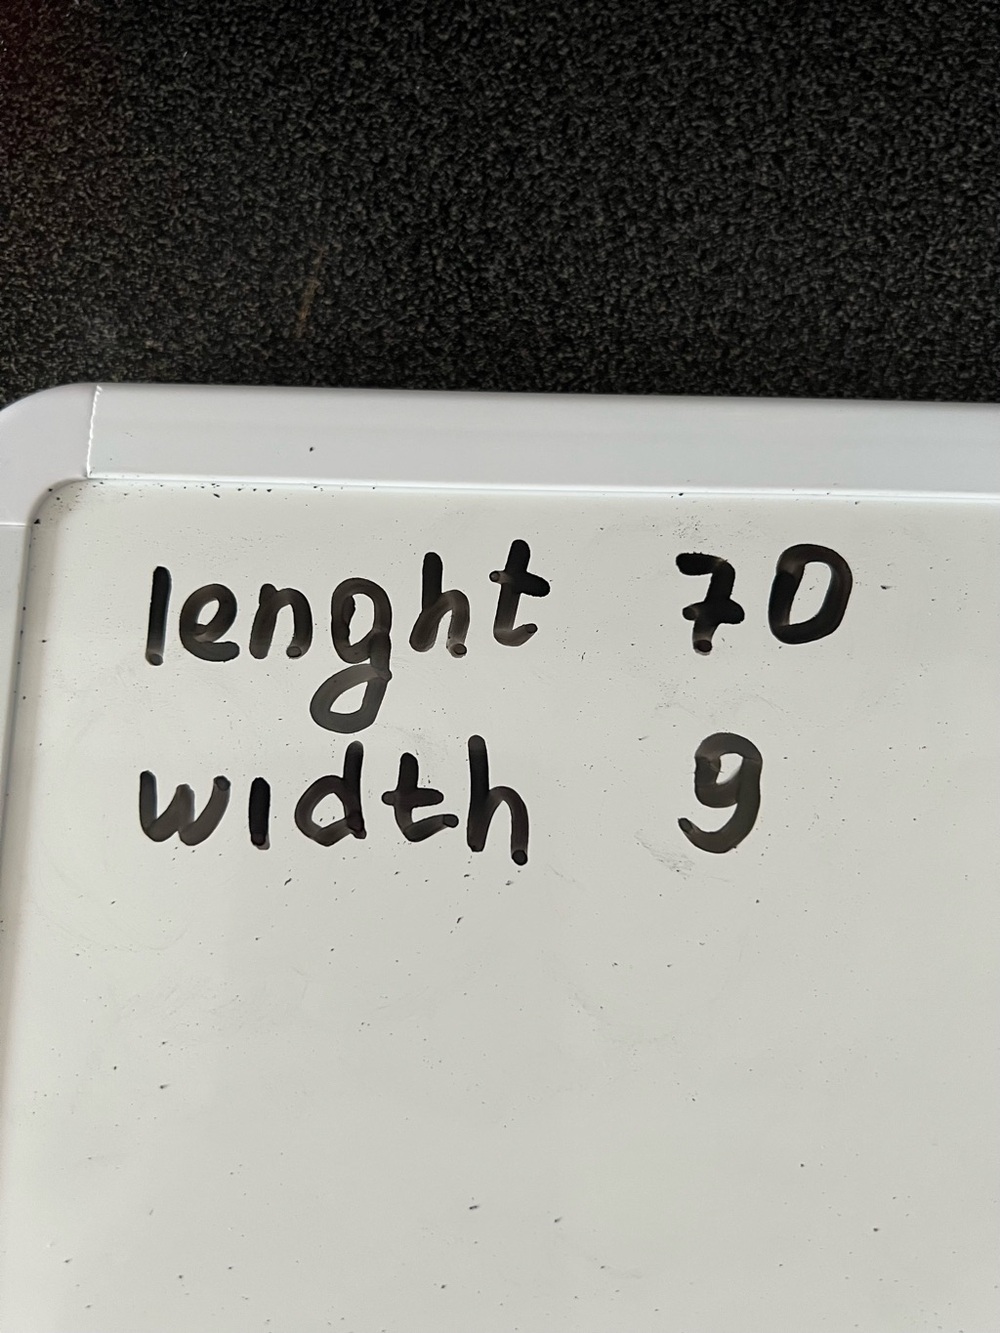 lenght 70
width 9